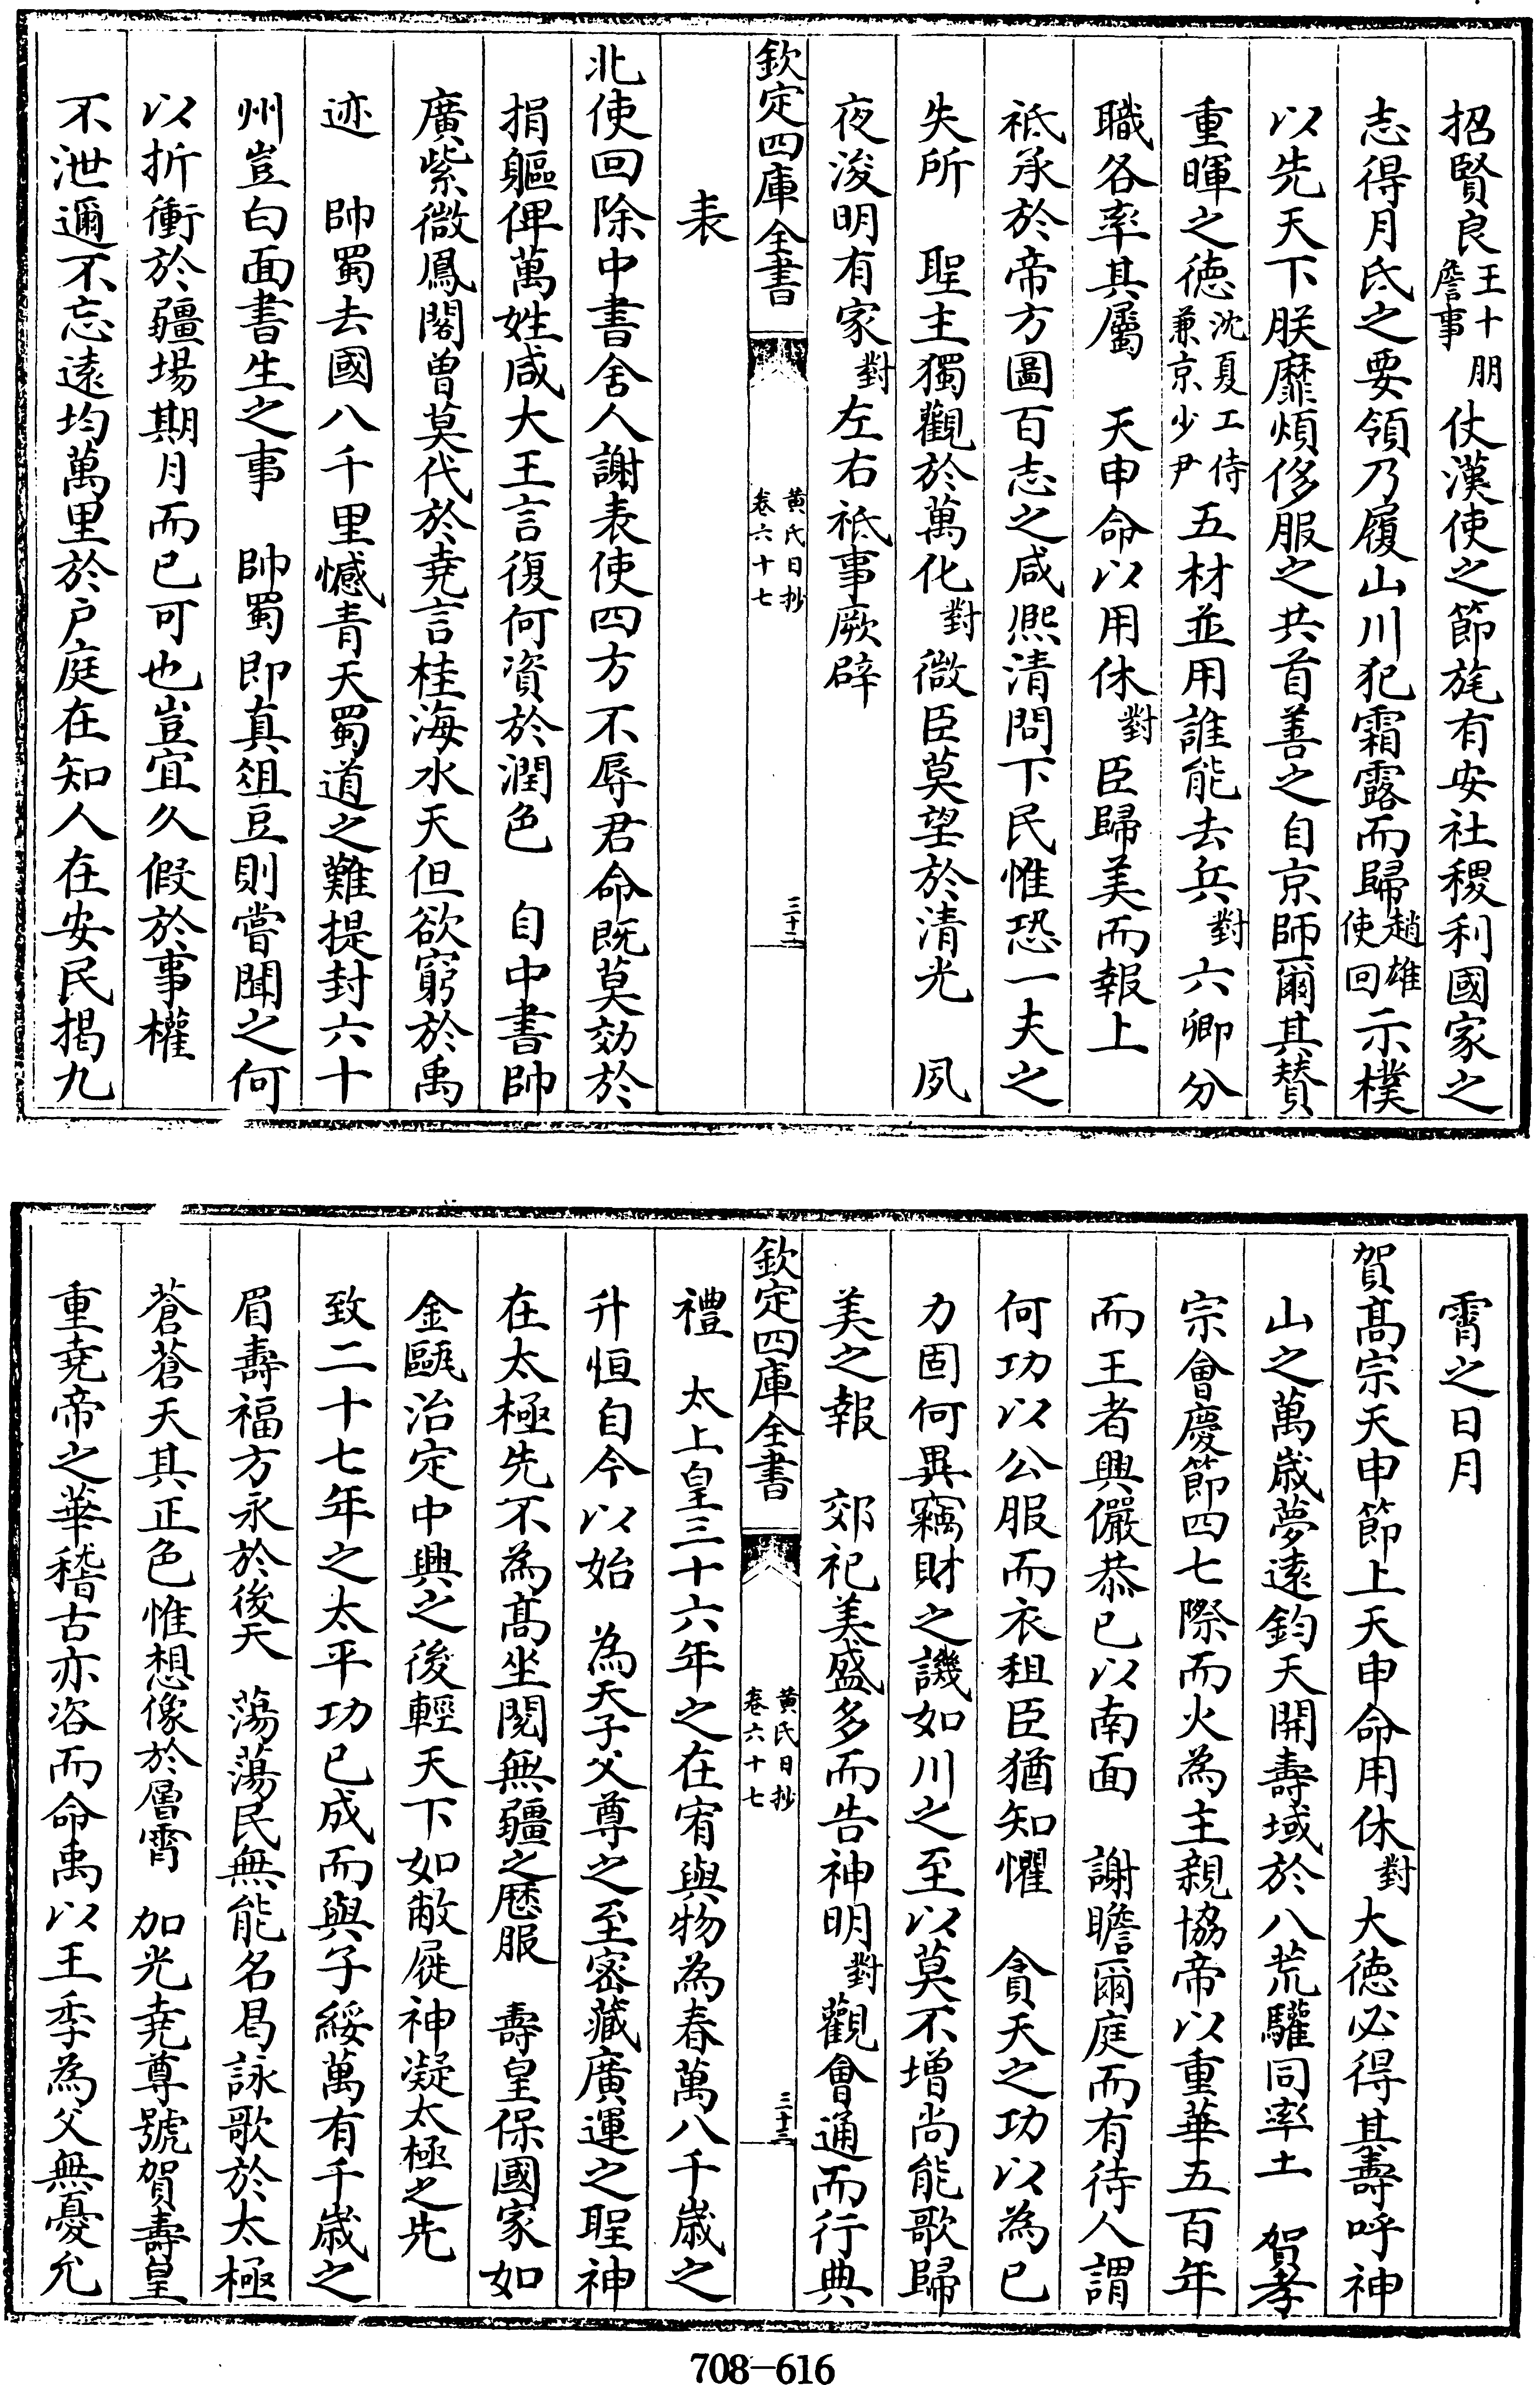 招賢良王十朋詹事仗漢使之節旄有安社稷利國家之
志得月氐之要領乃履山川犯霜露而歸趙雄使回示樸
以先天下朕靡煩侈服之共首善之自京師爾其賛
重暉之德沈夏工侍兼京少尹五材並用誰能去兵對六卿分
職各率其屬　天申命以用休對臣歸美而報上
祗承於帝方圖百志之咸熙清問下民惟恐一夫之
失所　聖主獨觀於萬化對微臣莫望於清光　夙
夜浚明有家對左右祗事厥辟
欽定四庫全書　黄氏日抄卷六十七　三十二
表
北使回除中書舍人謝表使四方不辱君命既莫効於
捐軀俾萬姓咸大王言復何資於潤色　自中書帥
廣紫微鳳閣曾莫代於堯言桂海水天但欲窮於禹
迹　帥蜀去國八千里憾青天蜀道之難提封六十
州豈白面書生之事　帥蜀即真俎豆則嘗聞之何
以折衝於疆埸期月而已可也豈宜久假於事權
不泄邇不忘遠均萬里於户庭在知人在安民揭九
霄之日月
賀髙宗天申節上天申命用休對大徳必得其壽呼神
山之萬歲夢遠鈞天開壽域於八荒驩同率土　賀孝
宗會慶節四七際而火為主親協帝以重華五百年
而王者興儼恭已以南面　謝瞻爾庭而有待人謂
何功以公服而衣租臣猶知懼　貪天之功以為已
力固何異竊財之譏如川之至以莫不增尚能歌歸
美之報　郊祀美盛多而告神明對觀會通而行典
欽定四庫全書　黄氏日抄卷六十七　三十三
禮　太上皇三十六年之在宥與物為春萬八千歲之
升恒自今以始　為天子父尊之至密藏廣運之聖神
在太極先不為髙坐閱無疆之厯服　壽皇保國家如
金甌治定中興之後輕天下如敝屣神凝太極之先
致二十七年之太平功已成而與子綏萬有千歲之
眉壽福方永於後天　蕩蕩民無能名曷詠歌於太極
蒼蒼天其正色惟想像於層霄　加光堯尊號賀壽皇
重堯帝之華稽古亦咨而命禹以王季為父無憂允
708-616